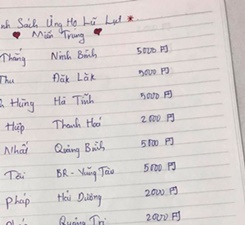 Sách Ủng Hộ Lũ Lụt
Miền Trung
Thắng Ninh Bình 5000 円
Thu Đăk Lăk 5000 円
Hùng Hà Tĩnh 5000 円
Hiệp Thanh Hoá 2000 円
Nhất Quảng Bình 5000 円
Tới BR - Vũng Tàu 5000 円
Pháp Hải Dương 2000 円
Quảng Trị 2000 円